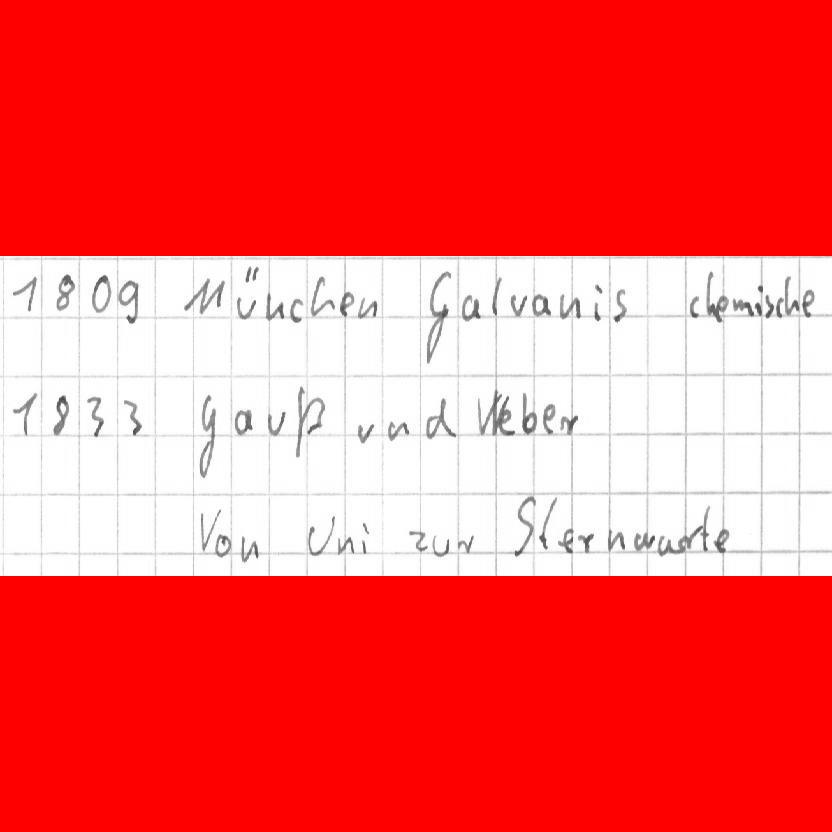 1809 München Galvanis chemische
1833 Gauß und Weber
Von Uni zur Sternwarte